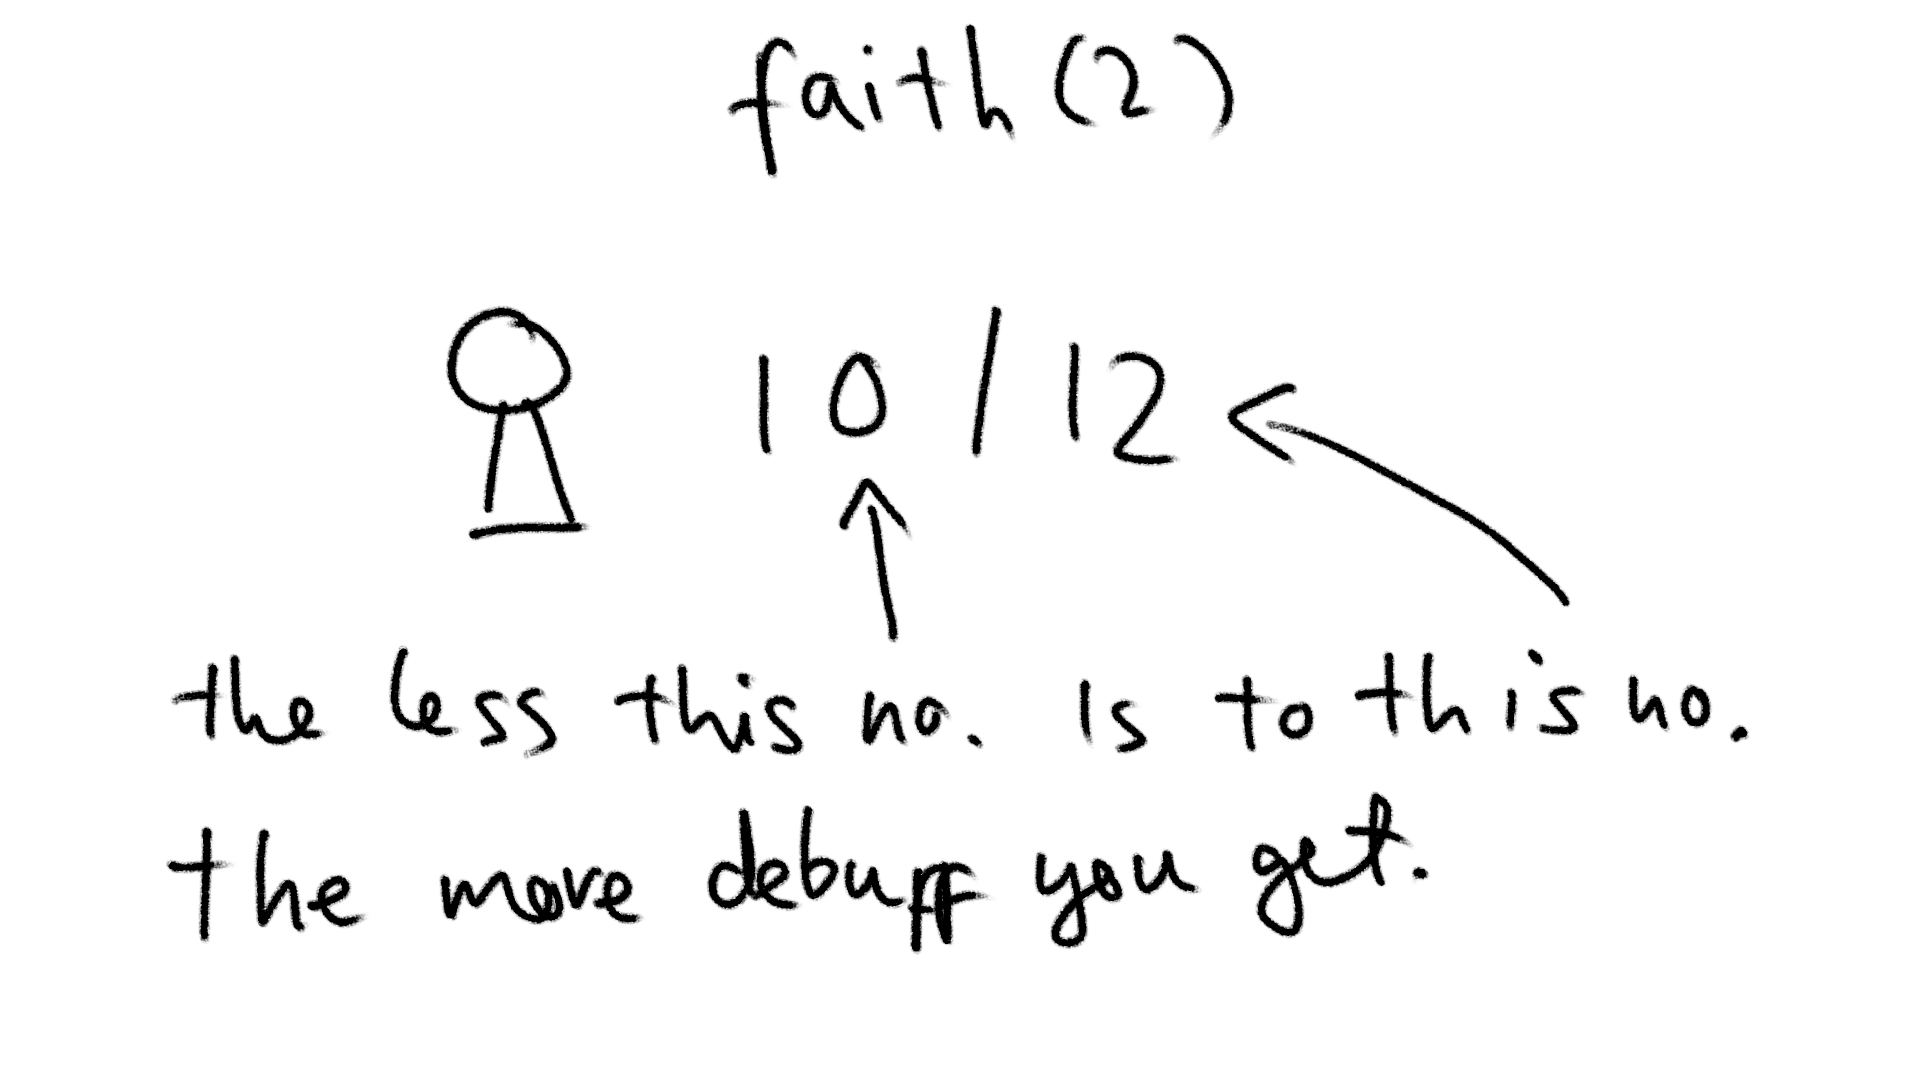 faith (2)
10 / 12
the less this no. is to this no.
the more debuff you get.